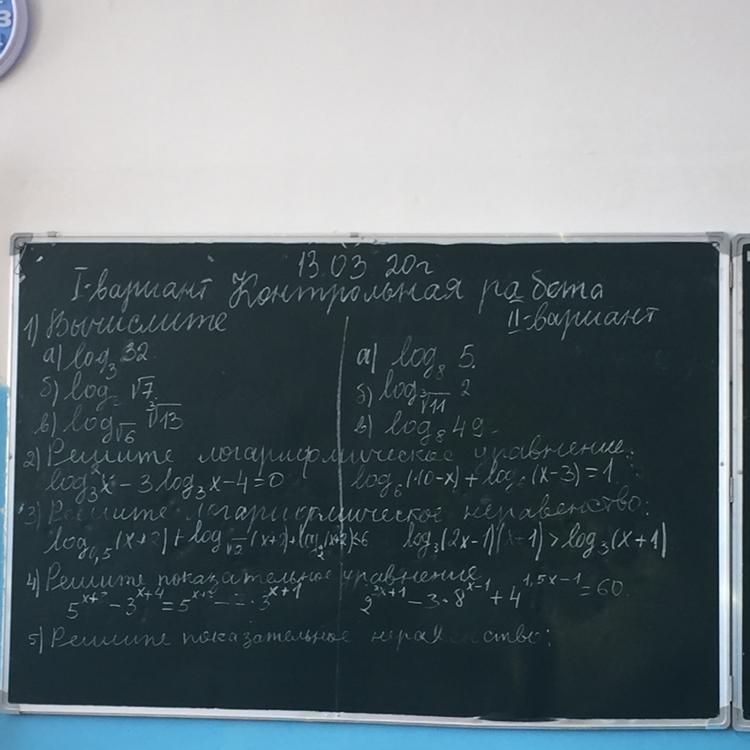 13.03 20г
I-вариант Контрольная работа
II-вариант
1) Вычислите
а) log₃ 32 а) log₈ 5.
б) log √7. б) log ∛11 2
в) log √6 ∛13 в) log₈ 49
2) Решите логарифмическое уравнение:
log₃²x - 3 log₃x - 4 = 0 log₆(10-x) + log (x-3) = 1
3) Решите логарифмическое неравенство:
log₀,₅(x+2) + log √2 (x+2) + (x+2) 6 log₃(2x-1)(x+1) > log₃(x+1)
4) Решите показательное уравнение
3ˣ⁺⁴ = 5 · 3ˣ⁺¹ 2³ˣ⁺¹ - 3·8ˣ⁻¹ + 4¹,⁵ˣ⁻¹ = 60.
5) Решите показательное неравенство: